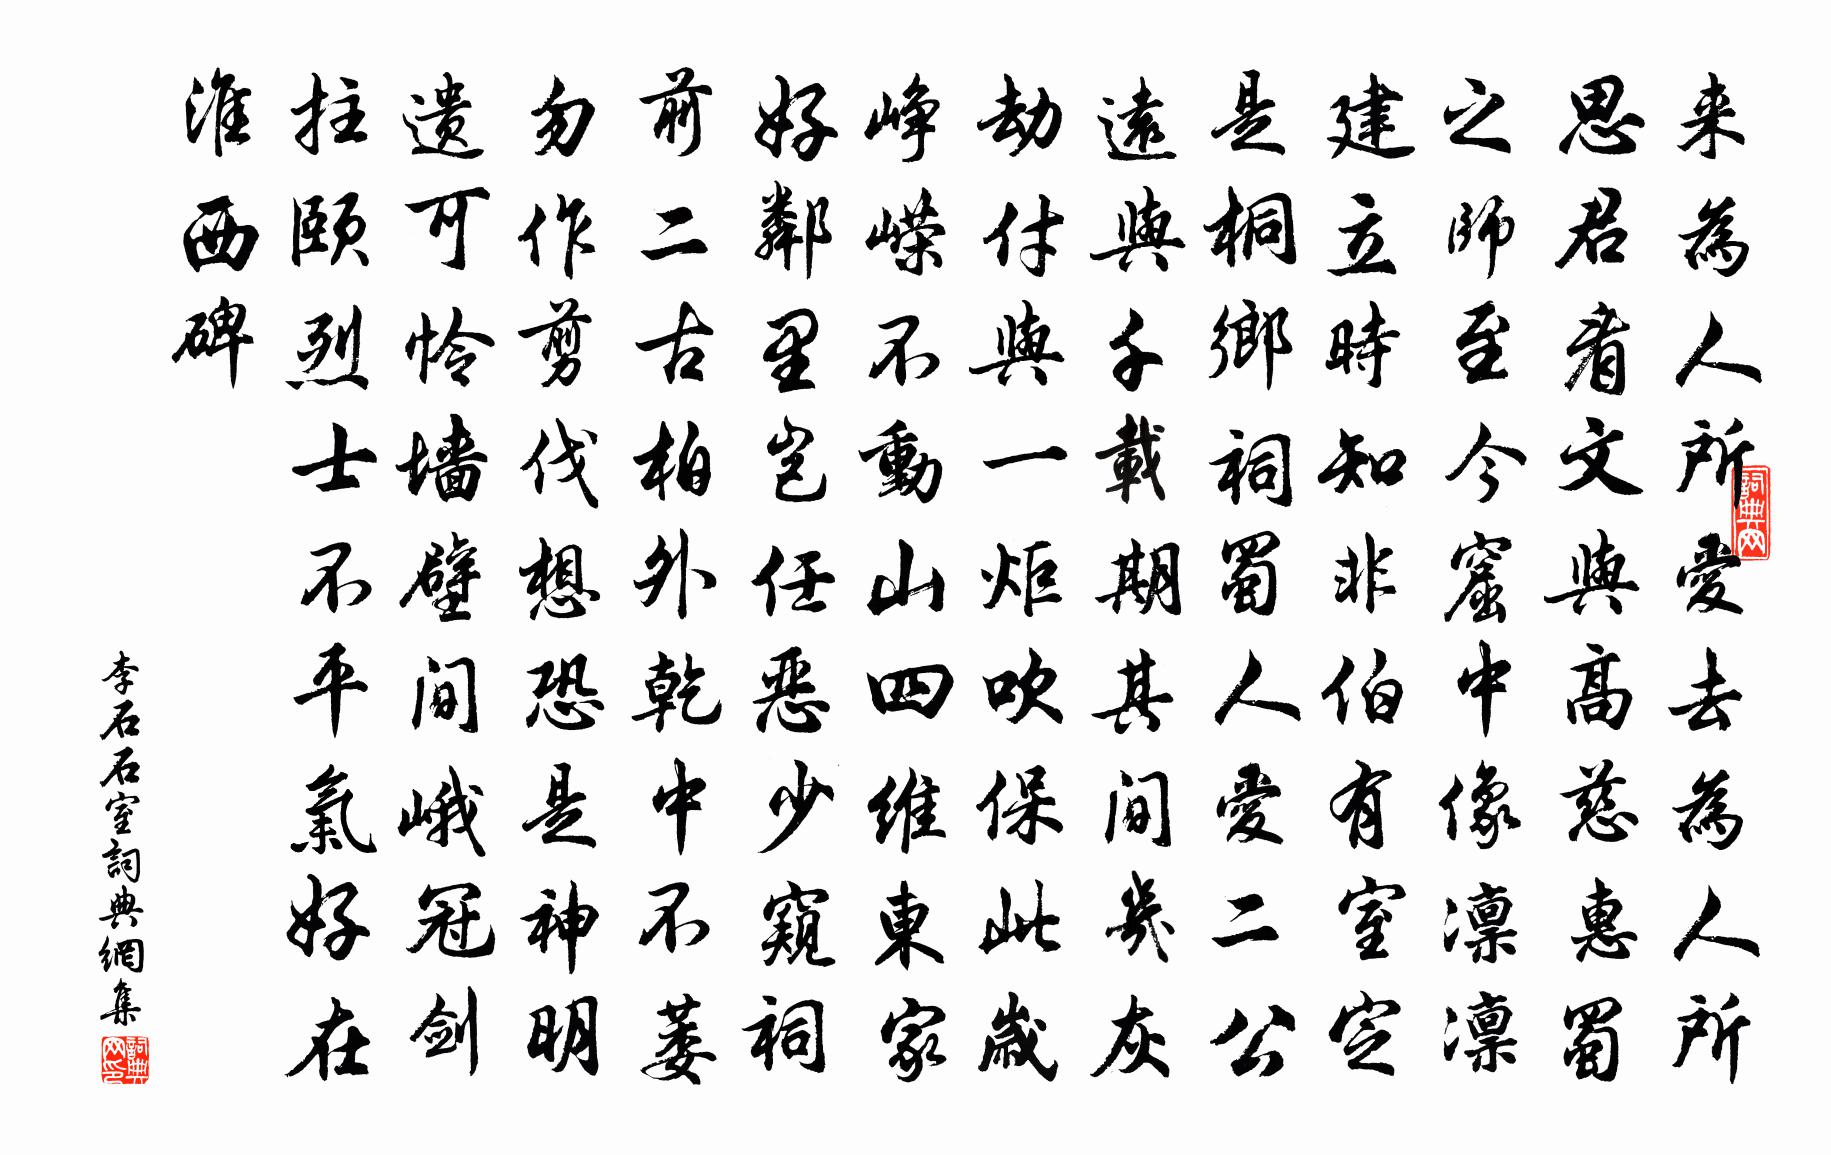 来為人所愛去為人所
思君看文與高慈惠蜀
之師至今窟中像凛凛
建立時知非伯有室定
是桐鄉祠蜀人愛二公
遠與千載期其间幾灰
劫付與一炬吹保此歲
峥嵘不動山四维東家
好鄰里岂任惡少窺祠
前二古柏外乾中不萎
勿作剪伐想恐是神明
遗可怜墙壁间峨冠剑
拄颐烈士不平氣好在
淮西碑
李石石室詞典網集
詞典网
詞典网印